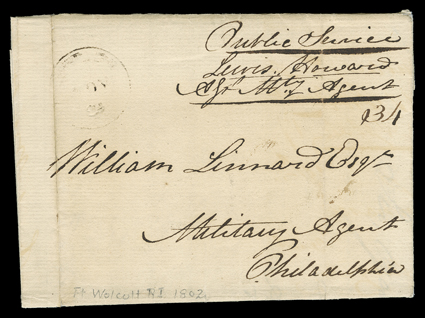 Public Service
Lewis Howard
Agt Mty Agent
34
William Linnard Esqr
Military Agent
Philadelphia
Ft Wolcott RI 1802